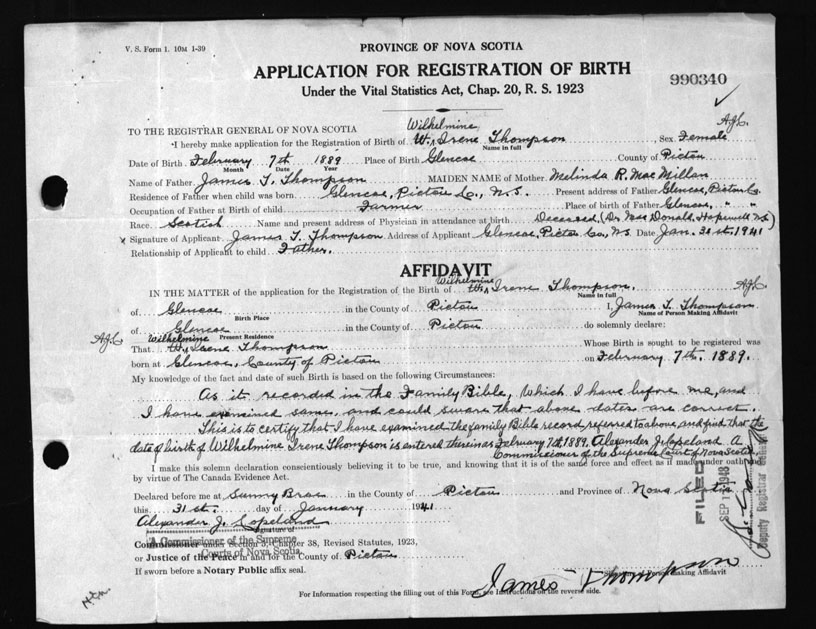 V. S. Form 1. 10M 1-39
PROVINCE OF NOVA SCOTIA
APPLICATION FOR REGISTRATION OF BIRTH
990340
Under the Vital Statistics Act, Chap. 20, R. S. 1923
TO THE REGISTRAR GENERAL OF NOVA SCOTIA Wilhelmine AJC
I hereby make application for the Registration of Birth of W. Irene Thompson, Sex Female
Name in full
Date of Birth February 7th 1889 Place of Birth Glencoe County of Pictou
Month Date Year
Name of Father James T. Thompson MAIDEN NAME of Mother Melinda R. MacMillan
Residence of Father when child was born Glencoe, Pictou Co., N.S. Present address of Father Glencoe, Pictou Co.
Occupation of Father at Birth of child Farmer Place of birth of Father Glencoe, " "
Race Scotish Name and present address of Physician in attendance at birth Deceased (Dr MacDonald, Hopewell N.S.)
x Signature of Applicant James T. Thompson Address of Applicant Glencoe, Pictou Co, N.S Date Jan. 31st. 1941
Relationship of Applicant to child Father.
AFFIDAVIT
Wilhelmine
IN THE MATTER of the application for the Registration of the Birth of W. Irene Thompson. AJC
Name in full
of Glencoe in the County of Pictou I, James T. Thompson
Birth Place Name of Person Making Affidavit
of Glencoe in the County of Pictou do solemnly declare:
AJC Wilhelmine Present Residence
That W. Irene Thompson Whose Birth is sought to be registered was
born at Glencoe, County of Pictou on February 7th. 1889.
My knowledge of the fact and date of such Birth is based on the following Circumstances:
As it recorded in the Family Bible, which I have before me, and
I have examined same, and could sware that above dates are correct.
This is to certify that I have examined the family Bible record referred to above, and find that the
date of birth of Wilhelmine Irene Thompson is entered therein as February 7th 1889. Alexander J. Copeland A
Commissioner of the Supreme Court of Nova Scotia
I make this solemn declaration conscientiously believing it to be true, and knowing that it is of the same force and effect as if made under oath
by virtue of The Canada Evidence Act.
Declared before me at Sunny Brae in the County of Pictou and Province of Nova Scotia
this 31st. day of January 1941
Alexander J. Copeland
Signature of
A Commissioner of the Supreme
Commissioner under Section 5, Chapter 38, Revised Statutes, 1923,
Courts of Nova Scotia
or Justice of the Peace in and for the County of Pictou
If sworn before a Notary Public affix seal.
James Thompson
Signature of Person Making Affidavit
For Information respecting the filling out of this Form, see Instructions on the reverse side.
FILED
SEP 1 1943
Deputy Registrar General